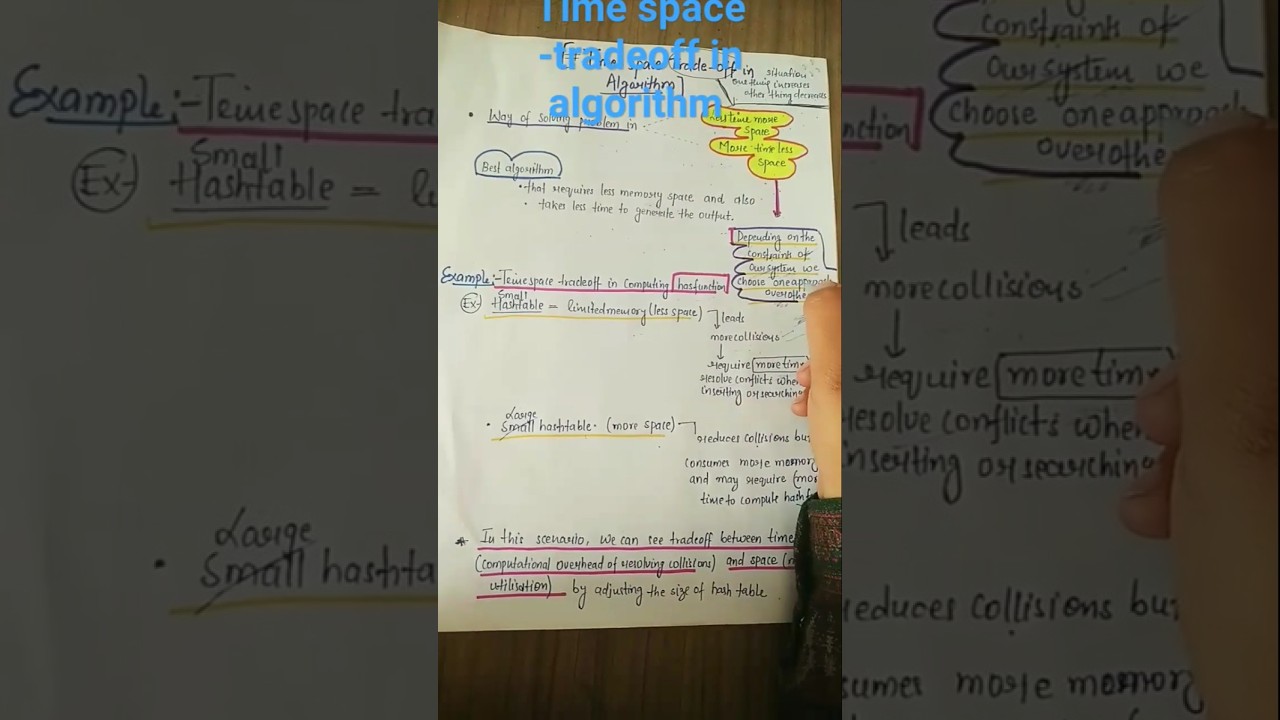 Time space
-tradeoff in
algorithm
Time Space Trade-off in
Algorithm]
situation
one thing increases
other thing decreases
• Way of solving problem in
less time more
space
More time less
space
Best algorithm
• that requires less memory space and also
• takes less time to generate the output.
Depending on the
constraints of
our system we
choose one approach
over othe
Example:- Teime space tradeoff in computing hasfunction
Ex-) Small
Hashtable = limited memory (less space)
leads
more collisions
require more time
resolve conflicts when
inserting or searching
Large
• Small hashtable. (more space)
reduces collisions bu
consumes more memory
and may require (mor
time to compute hash
* In this scenario, we can see tradeoff between time
(computational overhead of resolving collisions) and space (
utilisation) by adjusting the size of hash table
Example:- Teime space tra
Ex-) Small
Hashtable =
Large
• Small hashta
constraints of
our system we
choose one approach
over othe
nction
leads
more collisions
require more tim
resolve conflicts when
inserting or searching
reduces collisions bu
sumes more memory